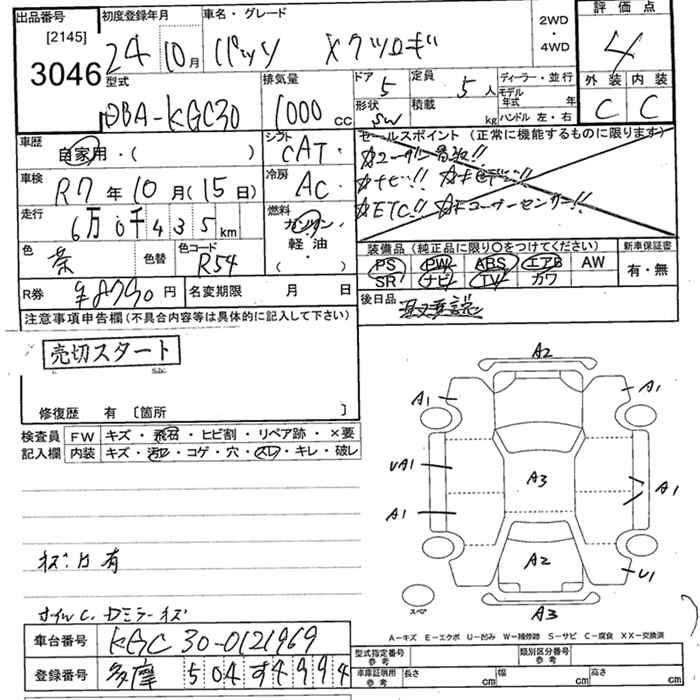 出品番号 初度登録年月 車名・グレード 2WD ・ 4WD 評価点
[2145]
3046 24 10月 パッソ Xクツロギ 4
型式 排気量 ドア 5 定員 5人 ディーラー・並行 外装 内装
DBA-KGC30 1000cc 形状 SW 積載 kg モデル年式 年 C C
ハンドル 左・右
車歴 自家用・( ) シフト CAT セールスポイント(正常に機能するものに限ります)
車検 R7年10月(15日) 冷房 AC
走行 6万0千435km 燃料 ガソリン・軽油・( )
ETC!!
色 茶 色替 色コード R54 装備品(純正品に限り○をつけてください) 新車保証書
PS PW ABS エアB AW 有・無
SR ナビ TV カワ
R券 ¥8790円 名変期限 月 日 後日品 取又車説
注意事項申告欄(不具合内容等は具体的に記入して下さい)
売切スタート
修復歴 有〔箇所 〕
検査員 FW キズ・飛石・ヒビ割・リペア跡・×要
記入欄 内装 キズ・汚レ・コゲ・穴・スレ・キレ・破レ
A2
A1 A1
UA1 A3 A1
A1
A2 U1
スペア A3
A-キズ E-エクボ U-凹み W-補修跡 S-サビ C-腐食 XX-交換済
車台番号 KGC30-0121969
登録番号 多摩 504 す4994
型式指定番号 参考 類別区分番号 参考
車庫証明用 参考 長さ cm 幅 cm 高さ cm